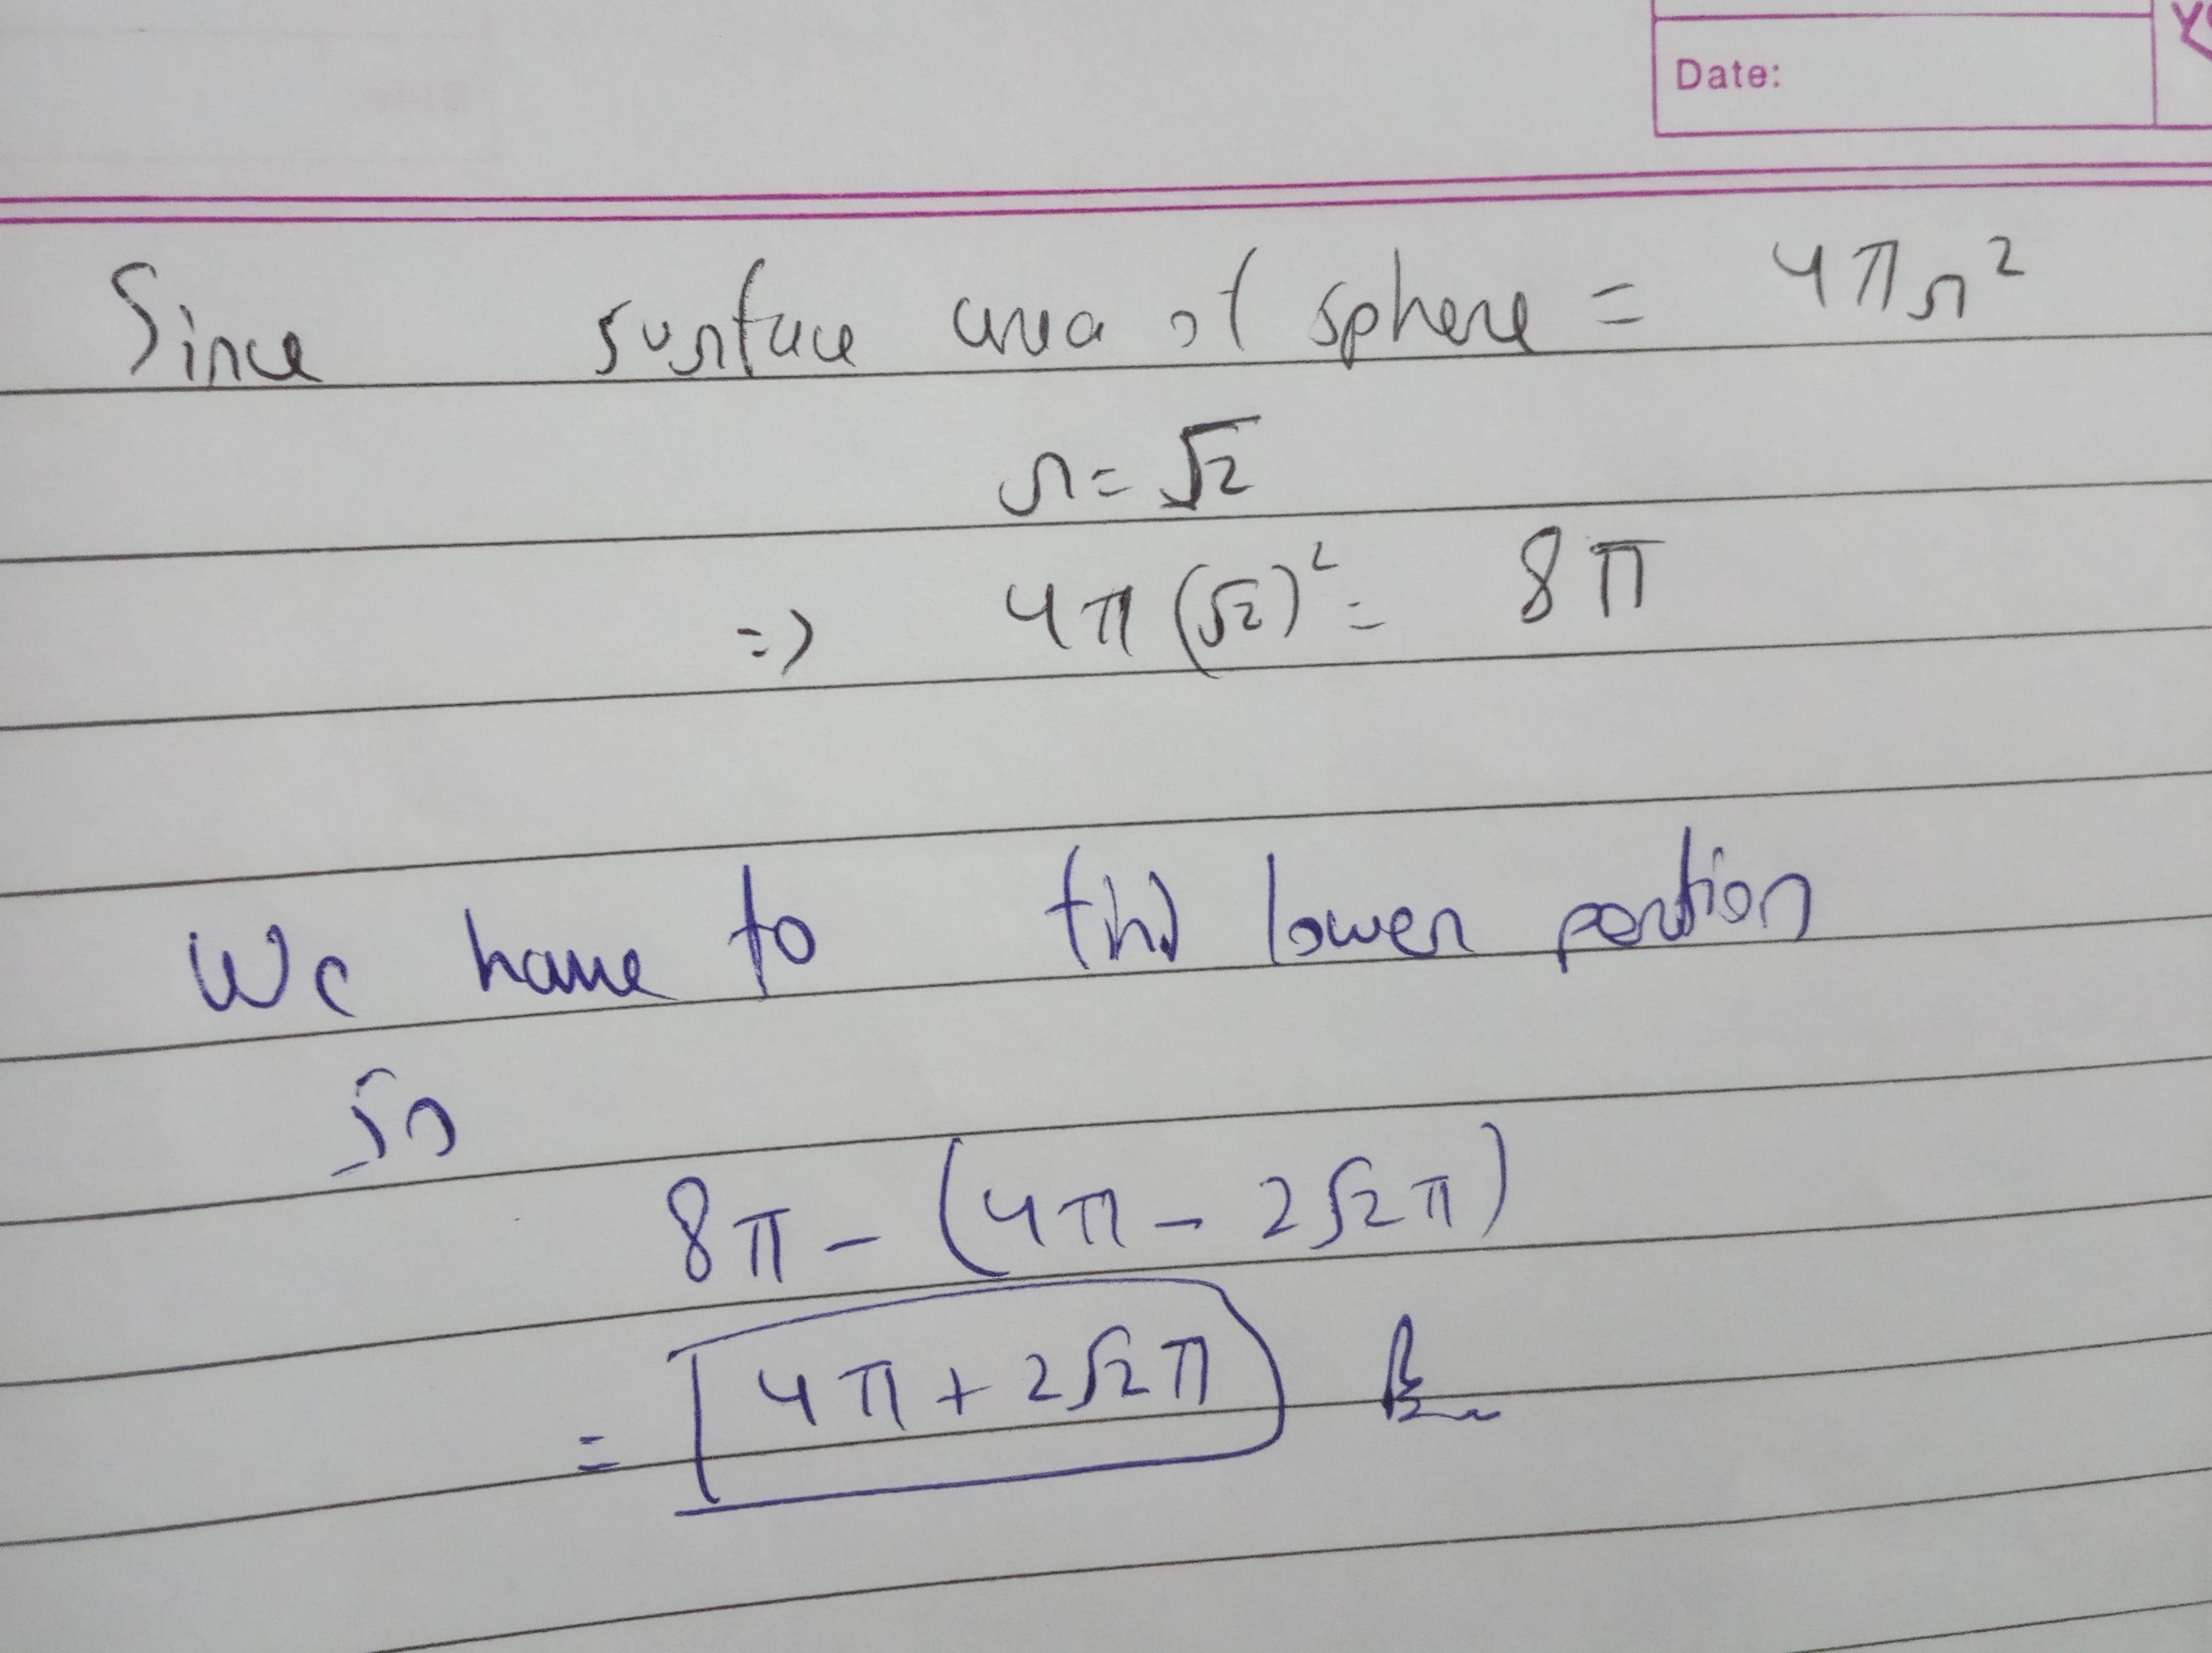 Date:
Since surface area of sphere = 4πr²
r = √2
=> 4π(√2)² = 8π
We have to find lower portion
So
8π - (4π - 2√2π)
= 4π + 2√2π